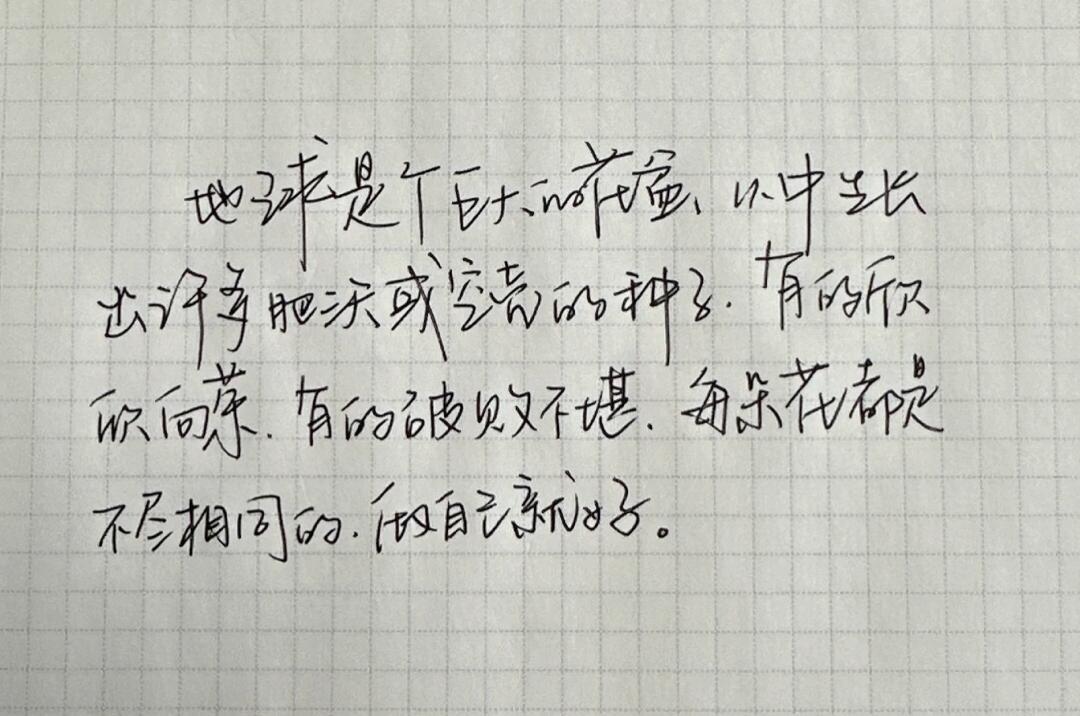 地球是个巨大的花盆、从中生长
出许多肥沃或空壳的种子.有的欣
欣向荣.有的破败不堪.每朵花都是
不尽相同的.做自己就好。